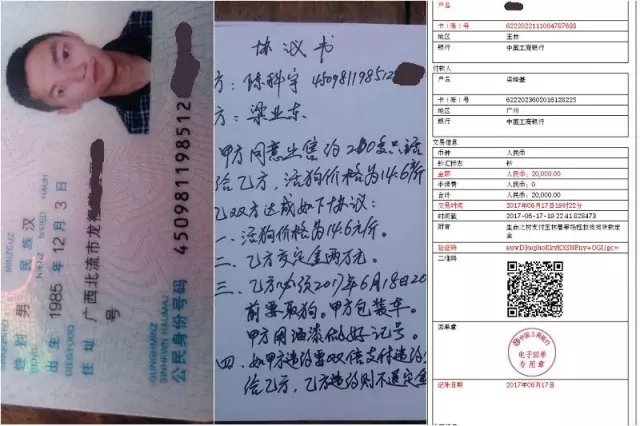 性别 男 民族 汉
出生 1985 年 12 月 3 日
住址 广西北流市龙
号
公民身份号码 450981198512
协议书
方：陈科宇 450981198512
方：梁业东
甲方同意出售约200条只活
给乙方，活狗价格为14.6斤
乙双方达成如下协议：
一、活狗价格为14.6元斤。
二、乙方交定金两万元。
三、乙方必须2017年6月18日20
前要取狗。甲方包装车。
甲方用油漆做好记号。
四、如甲方违约要双倍支付违约
给乙方，乙方违约则不退定金
户名
卡（账）号 6222022111004787688
地区 玉林
银行 中国工商银行
付款人
户名
卡（账）号 6222023602016128225
地区 广州
银行 中国工商银行
交易信息
币种 人民币
钞汇标志 钞
金额 人民币：20,000.00
手续费 人民币：0
合计 人民币：20,000.00
交易时间 2017年06月17日19时22分
时间戳 2017-06-17-19.22.41.828473
附言
验证码
二维码
回单章
中国工商银行
电子回单
专用章
记账日期 2017年06月17日